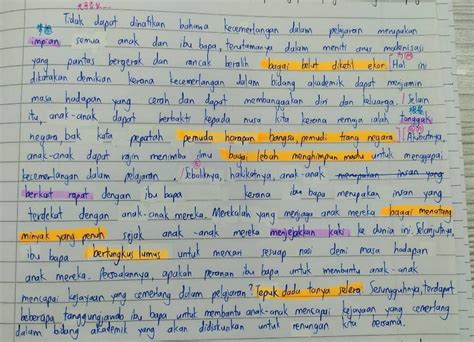 Tidak dapat dinafikan bahawa kecemerlangan dalam pelajaran merupakan
impian semua anak dan ibu bapa, terutamanya dalam meniti arus modenisasi
yang pantas bergerak dan rancak beralih bagai belut diketil ekor. Hal ini
dikatakan demikian kerana kecemerlangan dalam bidang akademik dapat menjamin
masa hadapan yang cerah dan dapat membanggakan diri dan keluarga. Selain
itu, anak-anak dapat berbakti kepada nusa kita kerana remaja ialah tonggak
negara bak kata pepatah, pemuda harapan bangsa, pemudi tiang negara. Akibatnya,
anak-anak dapat rajin menimba ilmu bagai lebah menghimpun madu untuk menggapai
kecemerlangan dalam pelajaran. Sebaliknya, hakikatnya, anak-anak merupakan insan yang
berkait rapat dengan ibu bapa kerana ibu bapa merupakan insan yang
terdekat dengan anak-anak mereka. Merekalah yang menjaga anak mereka bagai menatang
minyak yang penuh sejak anak-anak mereka menjejakkan kaki ke dunia ini. Selanjutnya,
ibu bapa bertungkus lumus untuk mencari sesuap nasi demi masa hadapan
anak mereka. Persoalannya, apakah peranan ibu bapa untuk membantu anak-anak
mencapai kejayaan yang cemerlang dalam pelajaran? Tepuk dada tanya selera. Sesungguhnya, terdapat
beberapa tanggungjawab ibu bapa untuk membantu anak-anak mencapai kejayaan yang cemerlang
dalam bidang akademik yang akan didiskusikan untuk renungan kita bersama.